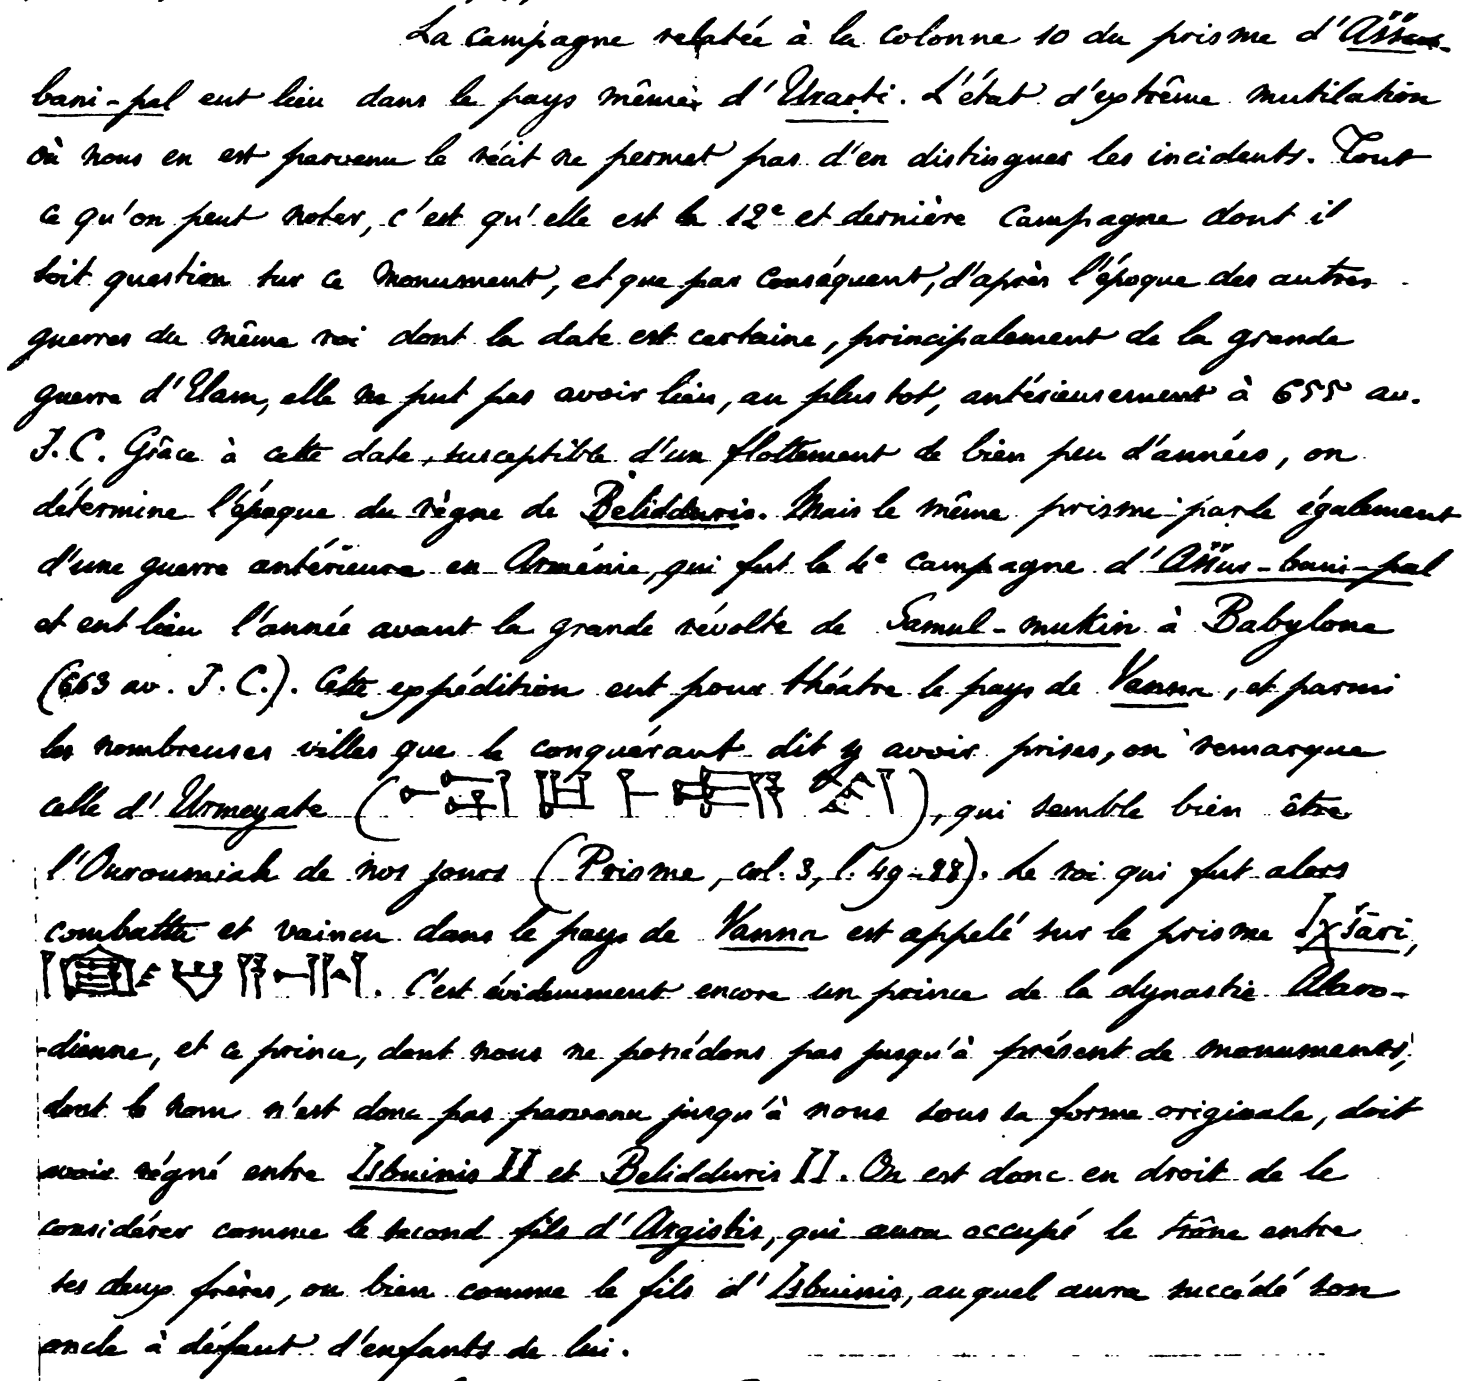 La campagne relatée à la colonne 10 du prisme d'Aššur-
bani-pal eut lieu dans le pays même d'Urarti. L'état d'extrême mutilation
où nous en est parvenu le récit ne permet pas d'en distinguer les incidents. Tout
ce qu'on peut noter, c'est qu'elle est la 12e et dernière campagne dont il
soit question sur ce monument, et que par conséquent, d'après l'époque des autres
guerres du même roi dont la date est certaine, principalement de la grande
guerre d'Elam, elle ne put pas avoir lieu, au plus tot, antérieurement à 655 av.
J. C. Grâce à cette date, susceptible d'un flottement de bien peu d'années, on
détermine l'époque du règne de Belidduris. Mais le même prisme parle également
d'une guerre antérieure en Arménie, qui fut la 4e campagne d'Aššur-bani-pal
et eut lieu l'année avant la grande révolte de Samul-mukin à Babylone
(663 av. J. C.). Cette expédition eut pour théatre le pays de Vanna, et parmi
les nombreuses villes que le conquérant dit y avoir prises, on remarque
celle d'Urmeyate ( ), qui semble bien être
l'Ouroumiah de nos jours (Prisme, col. 3, l. 49-88). Le roi qui fut alors
combattu et vaincu dans le pays de Vanna est appelé sur le prisme Iχšāri,
. C'est évidemment encore un prince de la dynastie Alaro-
-dienne, et ce prince, dont nous ne possédons pas jusqu'à présent de monuments,
dont le nom n'est donc pas parvenu jusqu'à nous sous sa forme originale, doit
avoir régné entre Isbuinis II et Belidduris II. On est donc en droit de le
considérer comme le second fils d'Argistis, qui aura occupé le trône entre
ses deux frères, ou bien comme le fils d'Isbuinis, auquel aura succédé son
oncle à défaut d'enfants de lui.